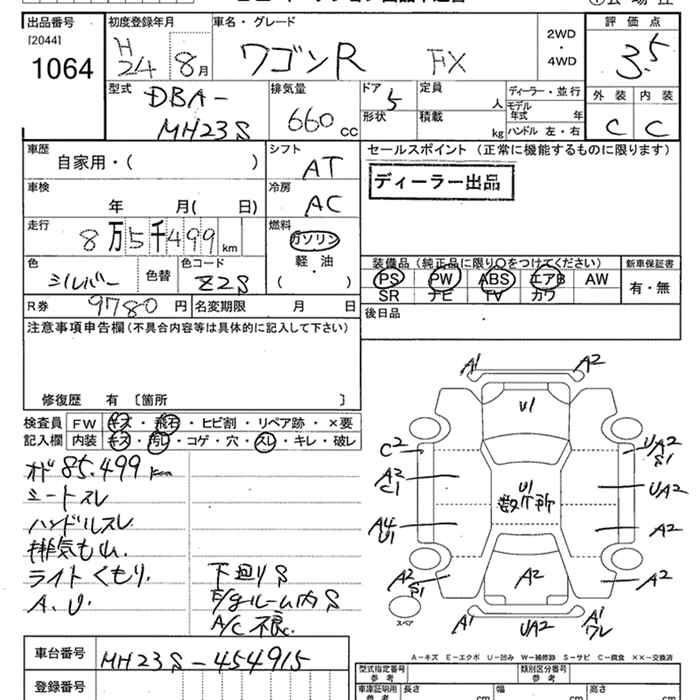 出品番号 初度登録年月 車名・グレード 評価点
[2044]
1064
H 24 8月
ワゴンR FX
2WD
・
4WD
3.5
型式 DBA-
MH23S
排気量
660 cc
ドア 5
形状
定員 人
積載 kg
ディーラー・並行
モデル年式 年式
ハンドル 左・右
外装 内装
C C
車歴 自家用・( )
シフト AT
車検 年 月( 日)
冷房 AC
走行 8万5千499 km
燃料 ガソリン
軽・油
( )
色 シルバー 色替 色コード Z2S
R券 9780円 名変期限 月 日
セールスポイント (正常に機能するものに限ります)
ディーラー出品
装備品 (純正品に限り○をつけてください) 新車保証書
PS PW ABS エアB AW
SR ナビ TV カワ
有・無
後日品
注意事項申告欄 (不具合内容等は具体的に記入して下さい)
修復歴 有 〔箇所 〕
検査員 FW キズ・飛石・ヒビ割・リペア跡・×要
記入欄 内装 キズ・汚レ・コゲ・穴・スレ・キレ・破レ
オド 85,499 km
シートスレ
ハンドルスレ
排気もれ
ライトくもり.
A.U.
下廻りS
E/gルーム内S
A/C不良
A1 A2
U1
C2
A2
C1
A4
U1
A2
S1
U1
数ヶ所
UA2
S1
UA2
A2
A2
A2
スペア
A1 UA2 A1
ワレ
A-キズ E-エクボ U-凹み W-補修跡 S-サビ C-腐食 ××-交換済
車台番号 MH23S-454915
登録番号
型式指定番号 参考
類別区分番号 参考
車庫証明用 参考 長さ cm 幅 cm 高さ cm